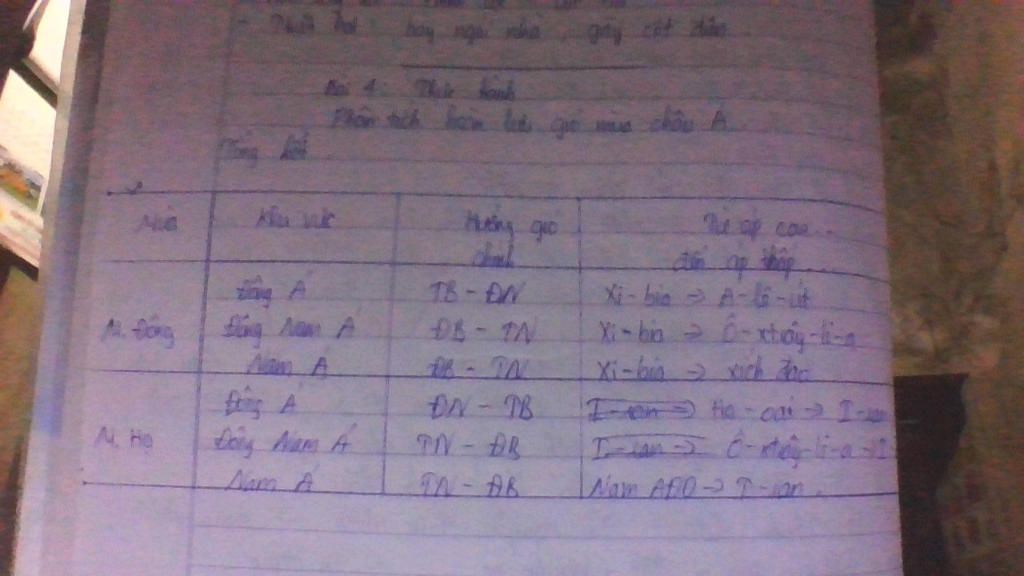 - Thiệt hại : bay ngói nhà, gãy cột điện.
Bài 4: Thực hành
Phân tích hoàn lưu gió mùa châu Á.
Tổng kết
Mùa Khu vực Hướng gió Từ áp cao
chính đến áp thấp
Đông Á TB - ĐN Xi-bia → A-lê-út
M. Đông Đông Nam Á ĐB - TN Xi-bia → Ô-xtrây-li-a
Nam Á ĐB - TN Xi-bia → xích đạo
Đông Á ĐN - TB I-ran → Ha-oai → I-ran
M. Hạ Đông Nam Á TN - ĐB I-ran → Ô-xtrây-li-a → I
Nam Á TN - ĐB Nam AĐD → I-ran.